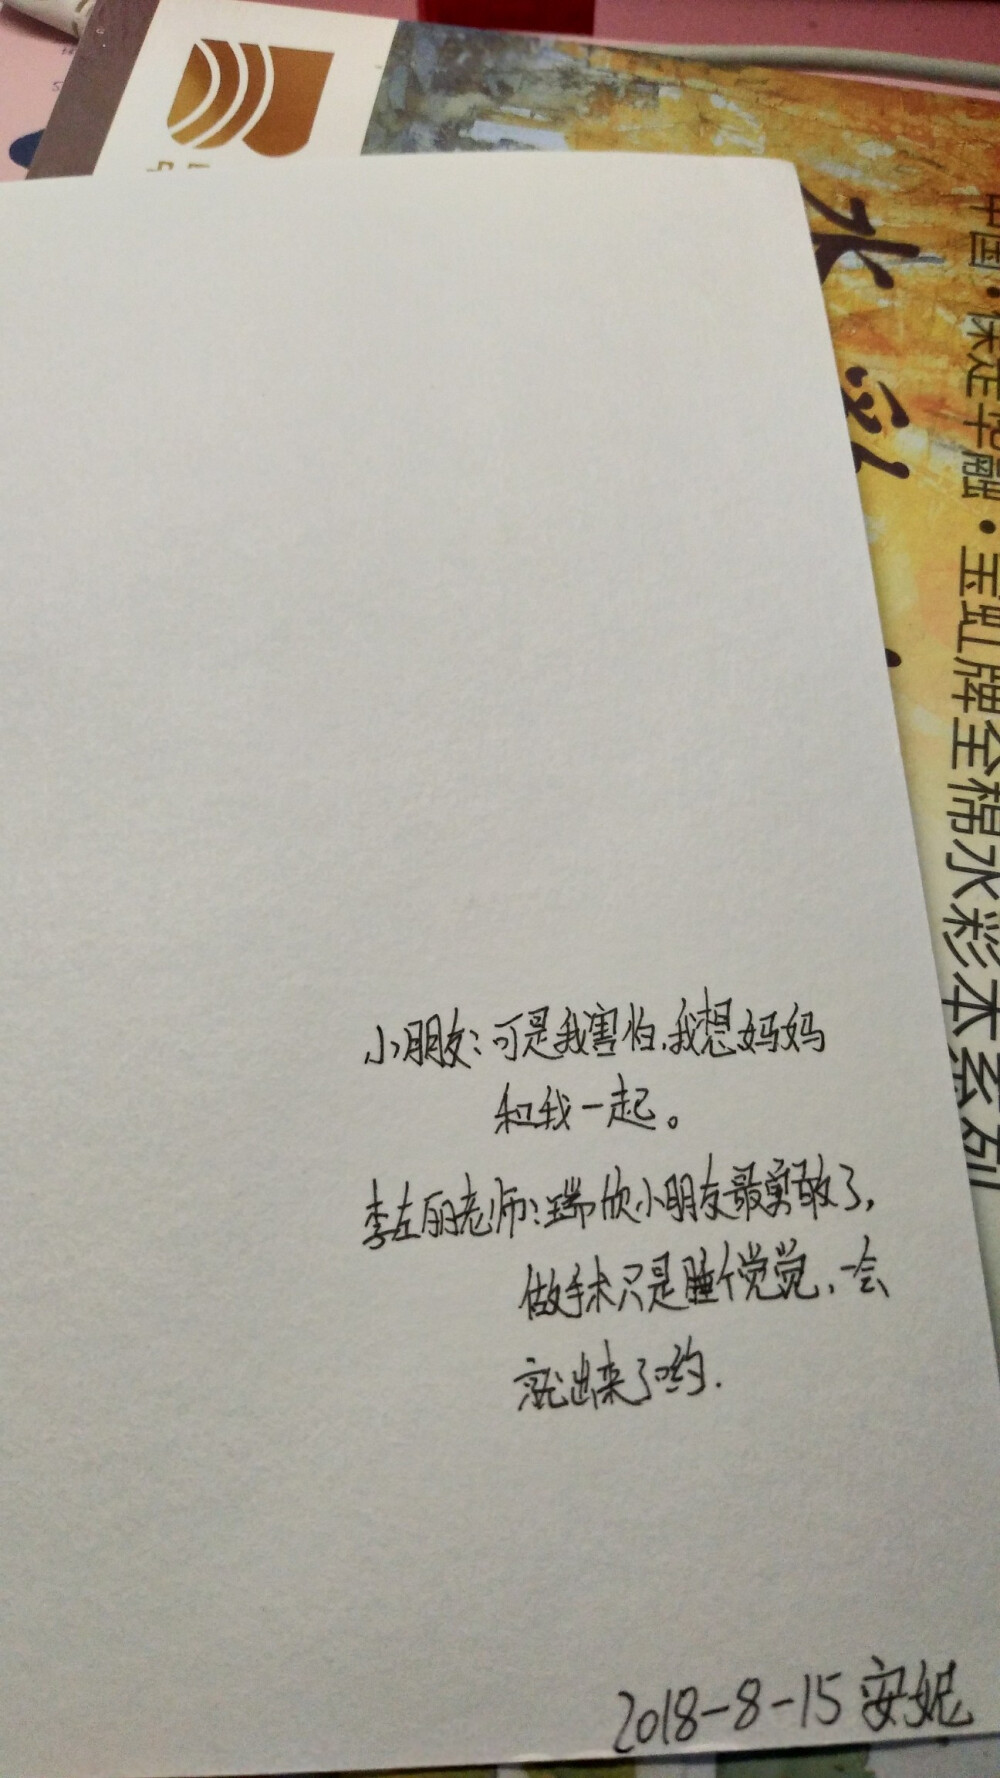 小朋友：可是我害怕，我想妈妈
和我一起。
李左丽老师：瑞欣小朋友最勇敢了，
做手术只是睡个觉觉，一会
就出来了哟.
2018-8-15 安妮
水彩
中国·保定华融·宝虹牌全棉水彩本系列